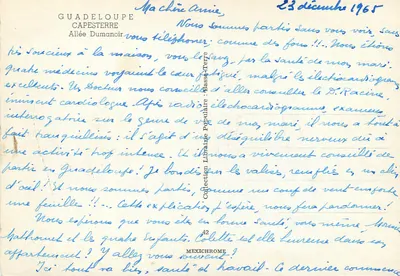 GUADELOUPE
CAPESTERRE
Allée Dumanoir
Ma chère Annie, 23 décembre 1965
Nous sommes partis sans vous voir, sans
vous téléphoner, comme des fous !!. Nous étions
très soucieux à la maison, vous le savez, par la santé de mon mari.
Quatre médecins voyaient le cœur fatigué, malgré les électrocardiogrammes
excellents. Un Docteur nous conseilla d'aller consulter le Dr Racine,
éminent cardiologue. Après radio, électrocardiogramme, examens,
interrogatoire sur le genre de vie de mon mari, il nous a tout à
fait tranquillisés : il s'agit d'un déséquilibre nerveux dû à
une activité trop intense. Et il nous a vivement conseillé de
partir en Guadeloupe ! Je bondis sur les valises, remplies en un clin
d'œil ! Et nous sommes partis, comme un coup de vent emporte
une feuille !!... Cette explication, j'espère, nous fera pardonner !
Nous espérons que vous êtes en bonne santé, vous même, Maurice
et les quatre enfants. Colette est-elle heureuse dans son
appartement ? Y allez-vous souvent ?
Ici tout va bien, santé et travail. Ce dernier commence
Collection Librairie Populaire Basse-Terre
42
MEXICHROME